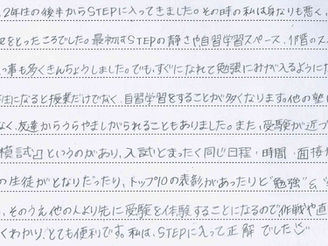 2年生の後半からSTEPに入ってきました。その時の私は身なりも悪く、
をとったころでした。最初はSTEPの静さや自習学習スペース、
事も多くきんちょうしました。でも、すぐになれて勉強にみが入るように
になると授業だけでなく、自習学習をすることが多くなります。他の塾
なく、友達からうらやましがられることもありました。また、受験が近づ
模試』というのがあり、入試とまったく同じ日程・時間・面接
の生徒がとなりだったり、トップ10の表彰があったりと"勉強"&
、そのうえ他の人より先に受験を体験することになるので作戦や直
くわかり、とても便利です。私は、STEPに入って正解でした